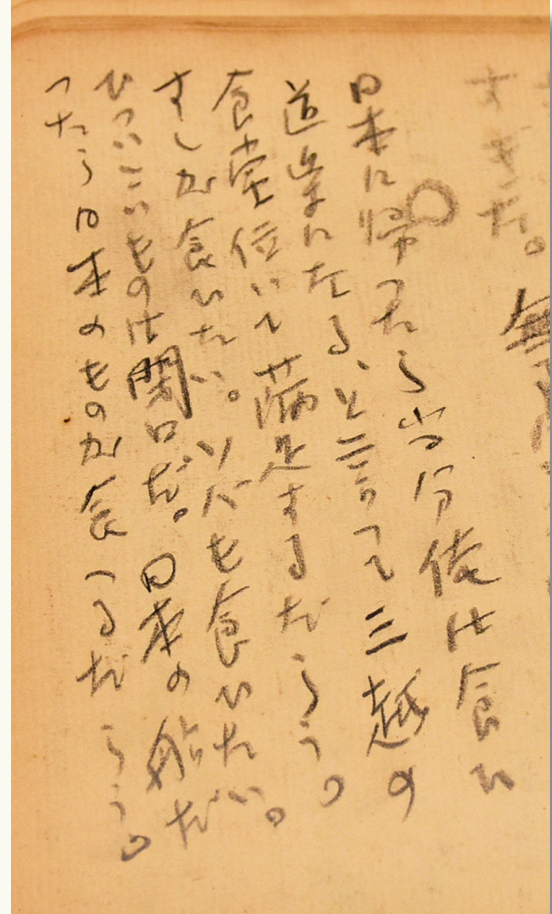 すぎた。無
日本に帰ったら当分俺は食ひ
道楽になる、と言って三越の
食堂位いで満足するだらう。
すしが食ひたい。ソバも食ひたい。
ひつっこいものは閉口だ。日本の船だ
ったら日本のものが食へるだらう。